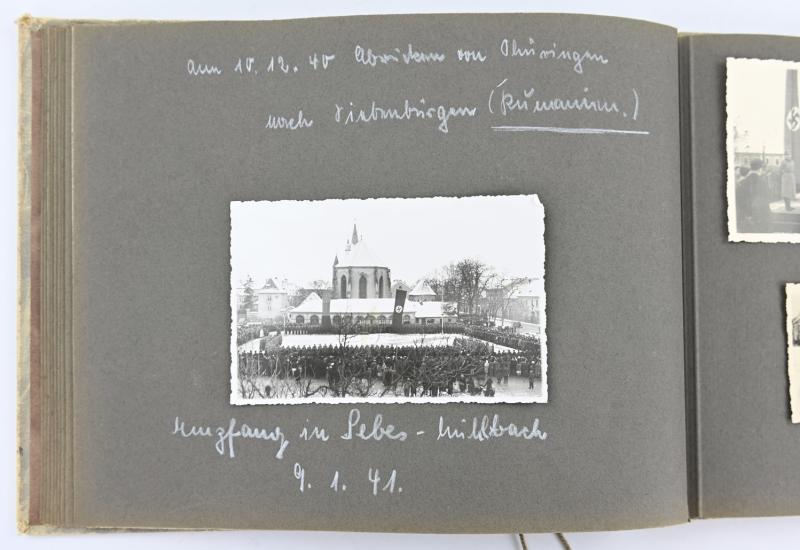 am 10. 12. 40 Abrücken von Thüringen
nach Siebenbürgen (Rumänien.)
Empfang in Sebes - Mühlbach
9. 1. 41.